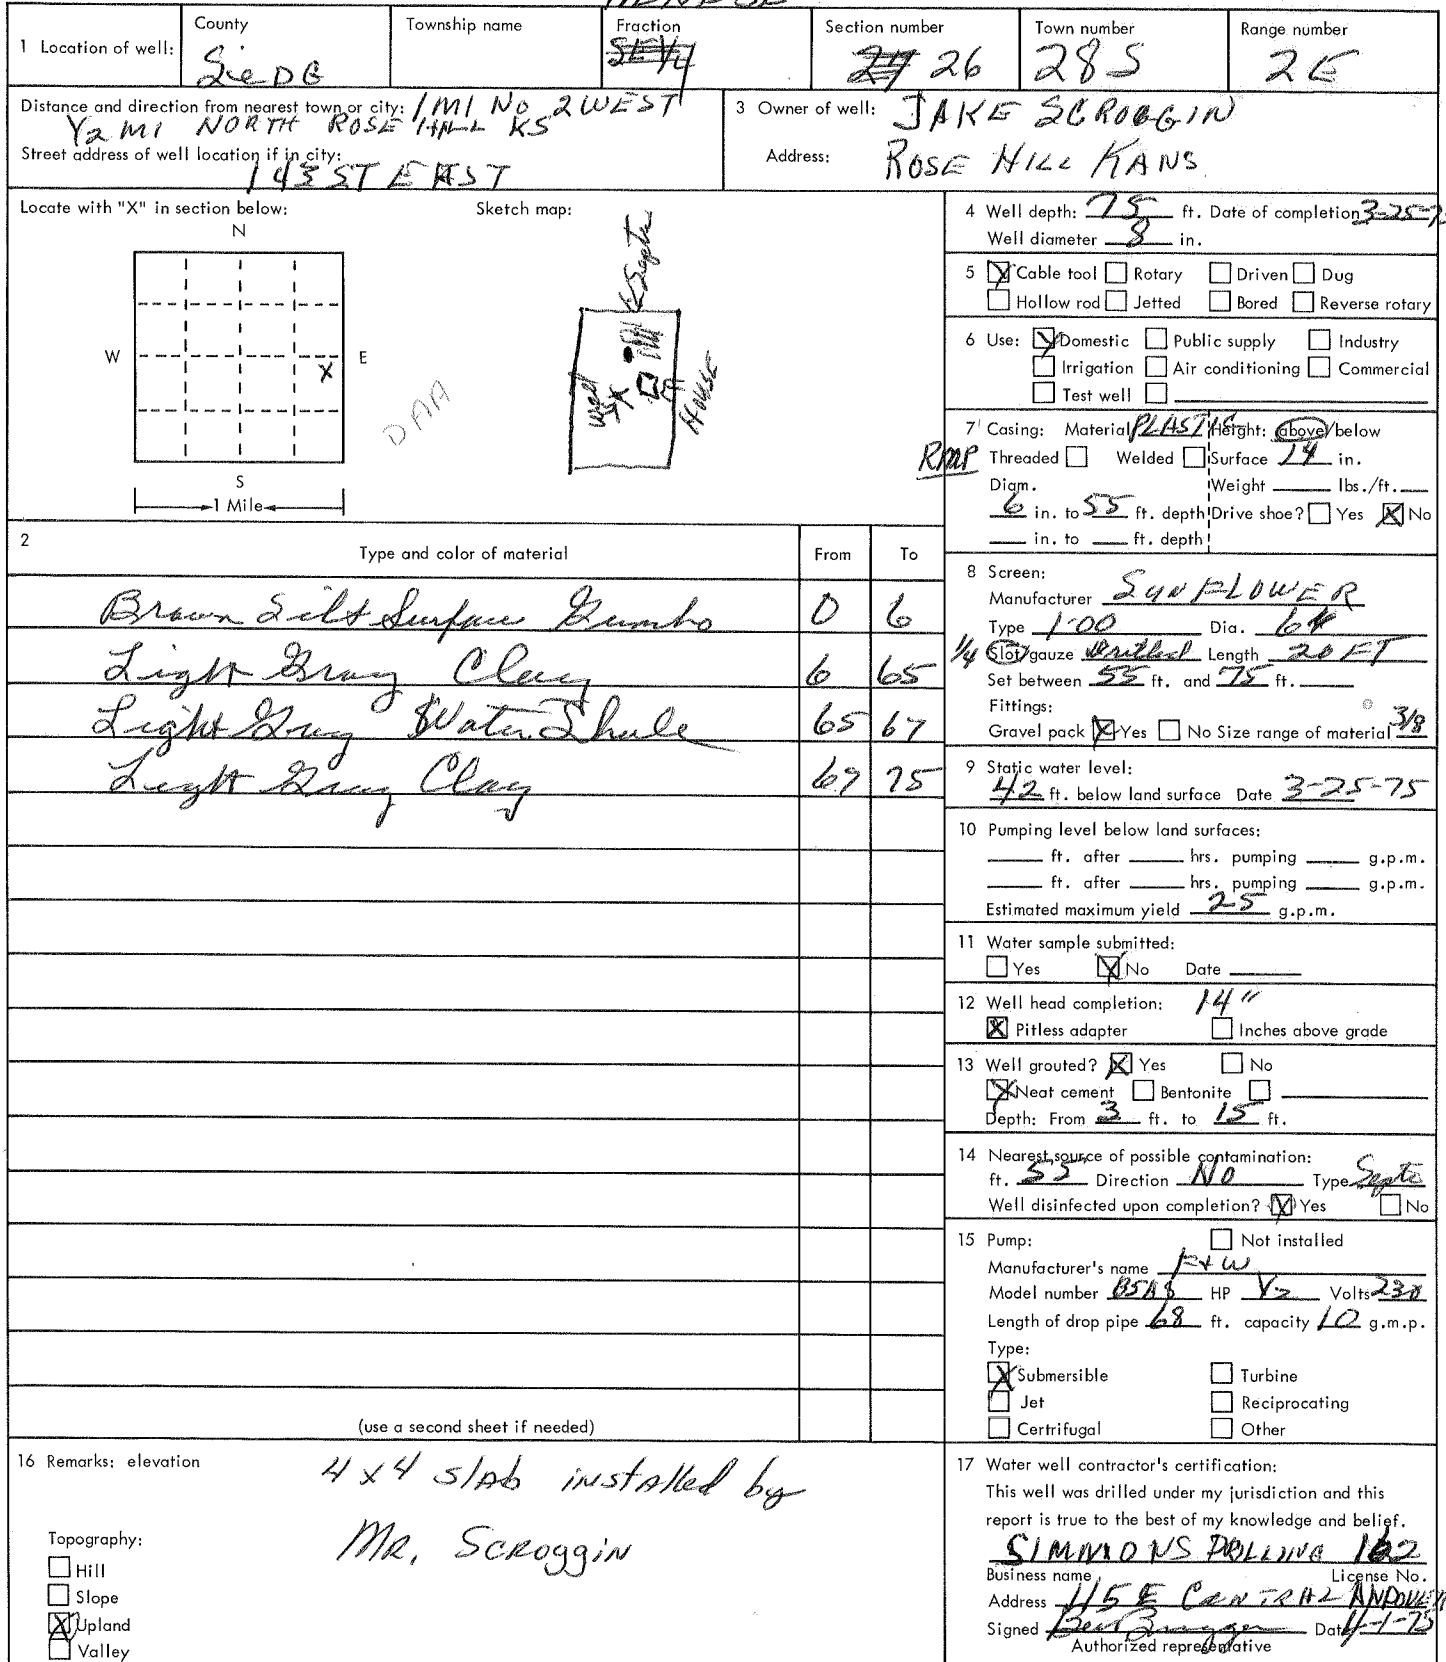 1 Location of well:
County
SeDG
Township name
Fraction
SE 1/4
Section number
27 26
Town number
28S
Range number
2E
Distance and direction from nearest town or city: 1 MI NO 2 WEST
1/2 MI NORTH ROSE HILL KS
Street address of well location if in city:
143 ST EAST
3 Owner of well: JAKE SCROGGIN
Address: ROSE HILL KANS
Locate with "X" in section below:
N
W
E
X
S
1 Mile
DAA
Sketch map:
Septic
well
X
House
4 Well depth: 75 ft. Date of completion 3-25-7
Well diameter 8 in.
5 X Cable tool Rotary Driven Dug
Hollow rod Jetted Bored Reverse rotary
6 Use: X Domestic Public supply Industry
Irrigation Air conditioning Commercial
Test well
7 Casing: Material PLASTIC Height: above/below
RMP Threaded Welded Surface 14 in.
Diam. Weight lbs./ft.
6 in. to 55 ft. depth Drive shoe? Yes X No
in. to ft. depth
2
Type and color of material From To
Brown Silt Surface Gumbo 0 6
Light Gray Clay 6 65
Light Gray Water Shale 65 67
Light Gray Clay 67 75
(use a second sheet if needed)
8 Screen:
Manufacturer SUNFLOWER
Type 100 Dia. 6"
1/4 Slot/gauze Drilled Length 20 FT
Set between 55 ft. and 75 ft.
Fittings:
Gravel pack X Yes No Size range of material 3/8
9 Static water level:
42 ft. below land surface Date 3-25-75
10 Pumping level below land surfaces:
ft. after hrs. pumping g.p.m.
ft. after hrs. pumping g.p.m.
Estimated maximum yield 25 g.p.m.
11 Water sample submitted:
Yes X No Date
12 Well head completion: 14"
X Pitless adapter Inches above grade
13 Well grouted? X Yes No
X Neat cement Bentonite
Depth: From 3 ft. to 15 ft.
14 Nearest source of possible contamination:
ft. 55 Direction NO Type Septic
Well disinfected upon completion? X Yes No
15 Pump: Not installed
Manufacturer's name F+W
Model number B5A8 HP 1/2 Volts 230
Length of drop pipe 68 ft. capacity 10 g.m.p.
Type:
X Submersible Turbine
Jet Reciprocating
Certrifugal Other
16 Remarks: elevation
4 x 4 slab installed by
MR. SCROGGIN
Topography:
Hill
Slope
X Upland
Valley
17 Water well contractor's certification:
This well was drilled under my jurisdiction and this
report is true to the best of my knowledge and belief.
SIMMONS DRLLING 162
Business name License No.
Address 115 E CENTRAL ANDOVER
Signed Date 4-1-75
Authorized representative